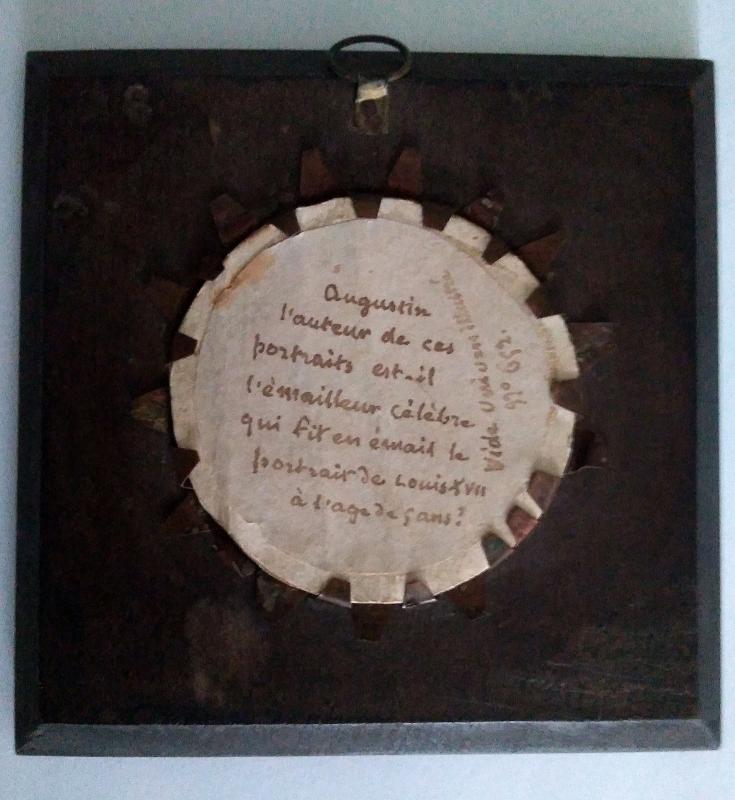 Augustin
l'auteur de ces
portraits est-il
l'émailleur célèbre
qui fit en émail le
portrait de Louis XVII
à l'age de 5 ans?
Vide Univers illustré
No 952.